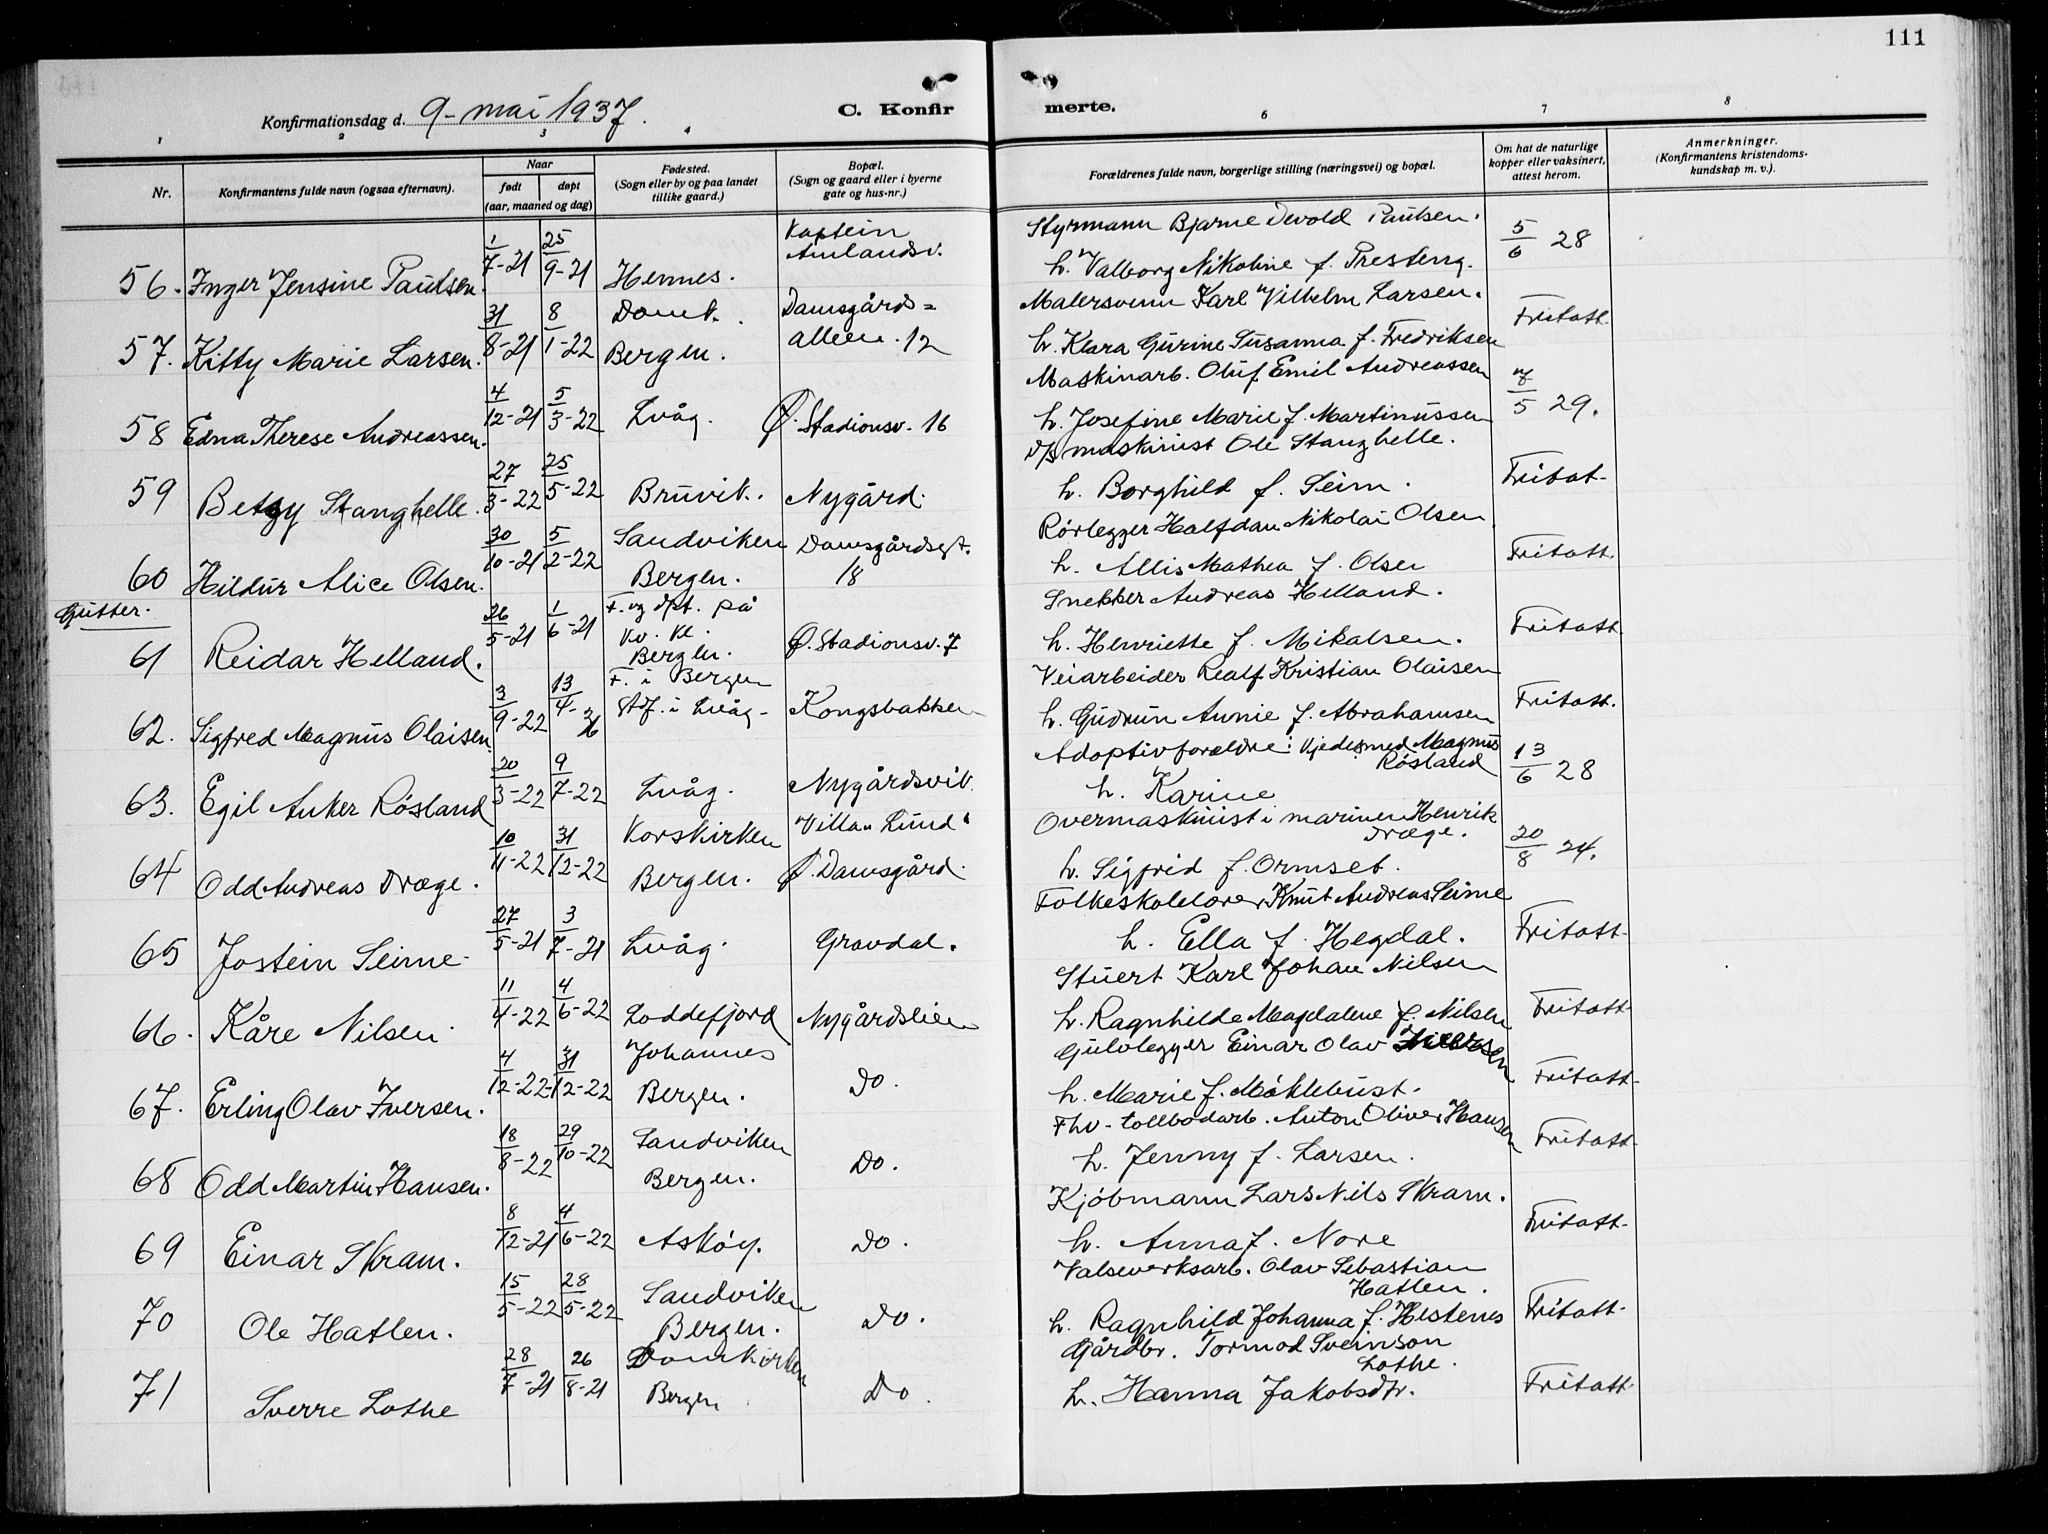 111
Konfirmationsdag d. 9-mai 1937.
C. Konfirmerte.
1 2 3 4 6 7 8
Nr. Konfirmantens fulde navn (ogsaa efternavn). Naar født døpt (aar, maaned og dag) Fødested. (Sogn eller by og paa landet tillike gaard.) Bopæl. (Sogn og gaard eller i byerne gate og hus-nr.) Forældrenes fulde navn, borgerlige stilling (næringsvei) og bopæl. Om hat de naturlige kopper eller vaksinert, attest herom. Anmerkninger. (Konfirmantens kristendoms-kundskap m. v.).
56. Inger Jensine Paulsen. 1/7-21 25/9-21 Hennes. Kaptein Amlandsv. Styrmann Bjarne Devold Paulsen. h. Valborg Nikoline f. Presteng. 5/6 28
57. Kitty Marie Larsen. 31/8-21 8/1-22 Domk. Bergen. Damsgårds=alleen. 12 Malersvenn Karl Vilhelm Larsen. h. Klara Gurine Susanna f. Fredriksen Fritatt.
58 Edna Therese Andreassen. 4/12-21 5/3-22 Lvåg. Ø. Stadionsv. 16 Maskinarb. Oluf Emil Andreassen h. Josefine Marie f. Martinussen 7/5 29.
59 Betzy Stanghelle. 27/3-22 25/5-22 Bruvik. Nygård. D/s maskinist Ole Stanghelle. h. Borghild f. Seim. Fritat.
60 Hildur Alice Olsen. 30/10-21 5/2-22 Sandviken Bergen. Damsgårdsgt. 18 Rørlegger Halfdan Nikolai Olsen h. Allis Mathea f. Olsen Fritatt.
Gutter.
61 Reidar Helland. 26/5-21 1/6-21 F. og dpt. på Kv. Kl. Bergen. Ø. Stadionsv. 7 Snekker Andreas Helland. h. Henriette f. Mikalsen. Fritatt.
62. Sigfred Magnus Olaisen. 3/9-22 13/4-36 F. i Bergen Stf. i Lvåg- Kongsbakken Veiarbeider Realf Kristian Olaisen h. Gudrun Annie f. Abrahamsen Fritatt.
63. Egil Anker Røsland 20/3-22 9/7-22 Lvåg. Nygårdsvik. Adoptivforældre: Kjedesmed Magnus Røsland h. Karine 13/6 28
64 Odd Andreas Dræge. 10/11-22 31/12-22 Korskirken Bergen. Villa „Lund" Ø. Damsgård. Overmaskinist i marinen Henrik Dræge. h. Sigfrid f. Ormset. 20/8 24.
65 Jostein Seime. 27/5-21 3/7-21 Lvåg. Gravdal. Folkeskolelærer Knut Andreas Seime h. Ella f. Hegdal. Fritatt.
66. Kåre Nilsen. 11/4-22 4/6-22 Loddefjord Nygårdslien Stuert Karl Johan Nilsen h. Ragnhilde Magdalene f. Nilsen Fritatt.
67. Erling Olav Iversen. 4/12-22 31/12-22 Johannes Bergen. Do. Gulvlegger Einar Olav Iversen h. Marie f. Møklebust. Fritatt.
68 Odd Martin Hansen. 18/8-22 29/10-22 Sandviken Bergen. Do. Fhv. tollbodarb. Anton Oliver Hansen h. Jenny f. Larsen. Fritatt.
69 Einar Skram. 8/12-21 4/6-22 Askøy. Do. Kjøbmann Lars Nils Skram. h. Anna f. Nore Fritatt.
70 Ole Hatlen. 15/5-22 28/5-22 Sandviken Bergen. Do. Valseverksarb. Olav Sebastian Hatlen. h. Ragnhild Johanna f. Hestenes Fritatt.
71 Sverre Lothe 28/7-21 26/8-21 Domkirken Bergen Do. Gårdbr. Tormod Sveinson Lothe. h. Hanna Jakobsdtr. Fritatt.